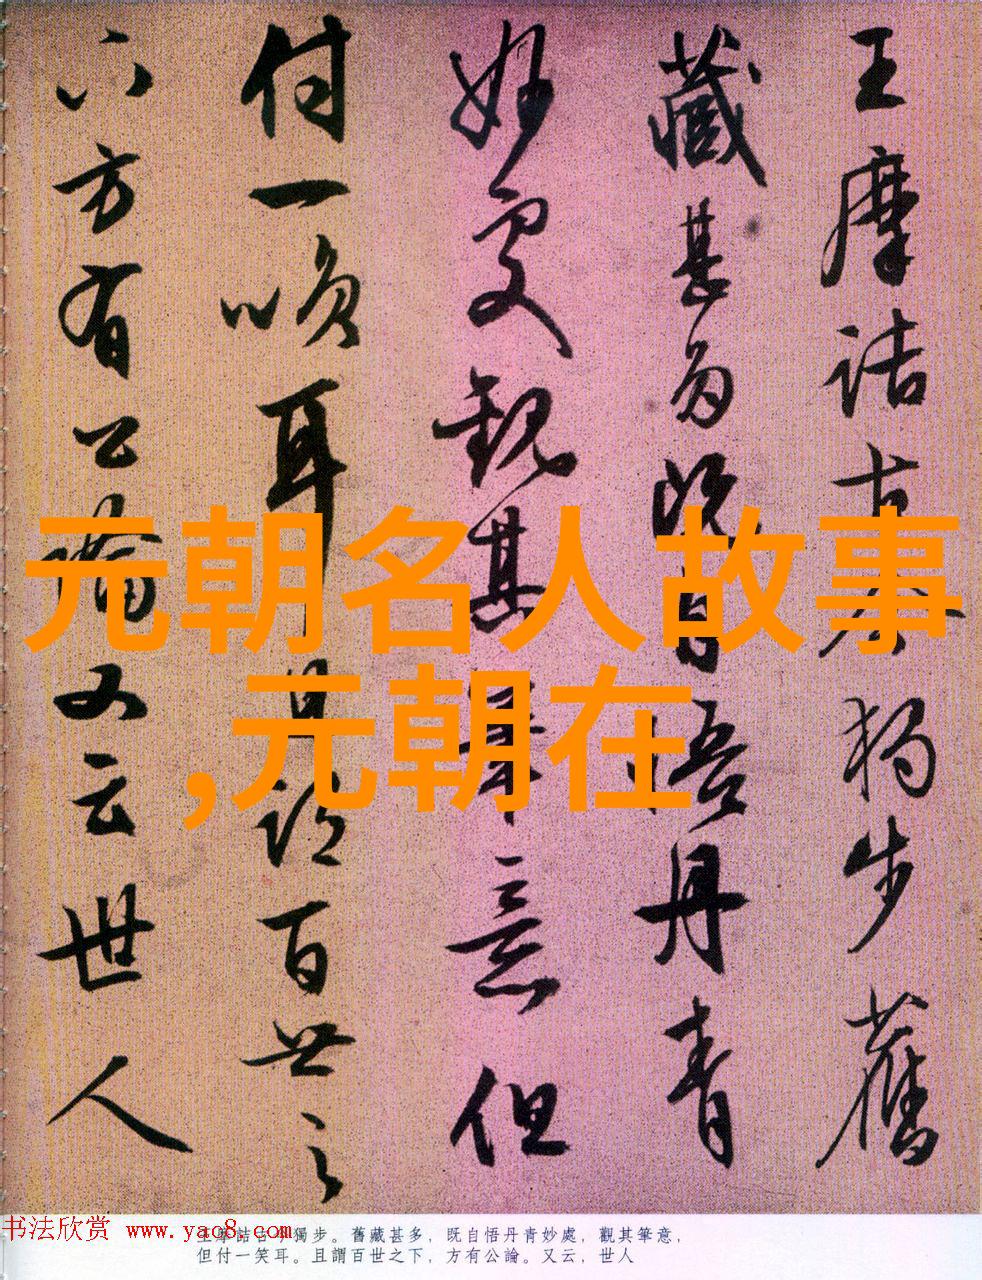 王摩詰古今獨步舊
藏甚多既自悟丹青
妙處觀其筆意但
付一笑耳且謂百世之
下方有公論又云世人
元朝名人故事
,元朝在
书法欣赏 www.yac8.com
王摩詰古今獨步。舊藏甚多，既自悟丹青妙處，觀其筆意，
但付一笑耳。且謂百世之下，方有公論。又云，世人